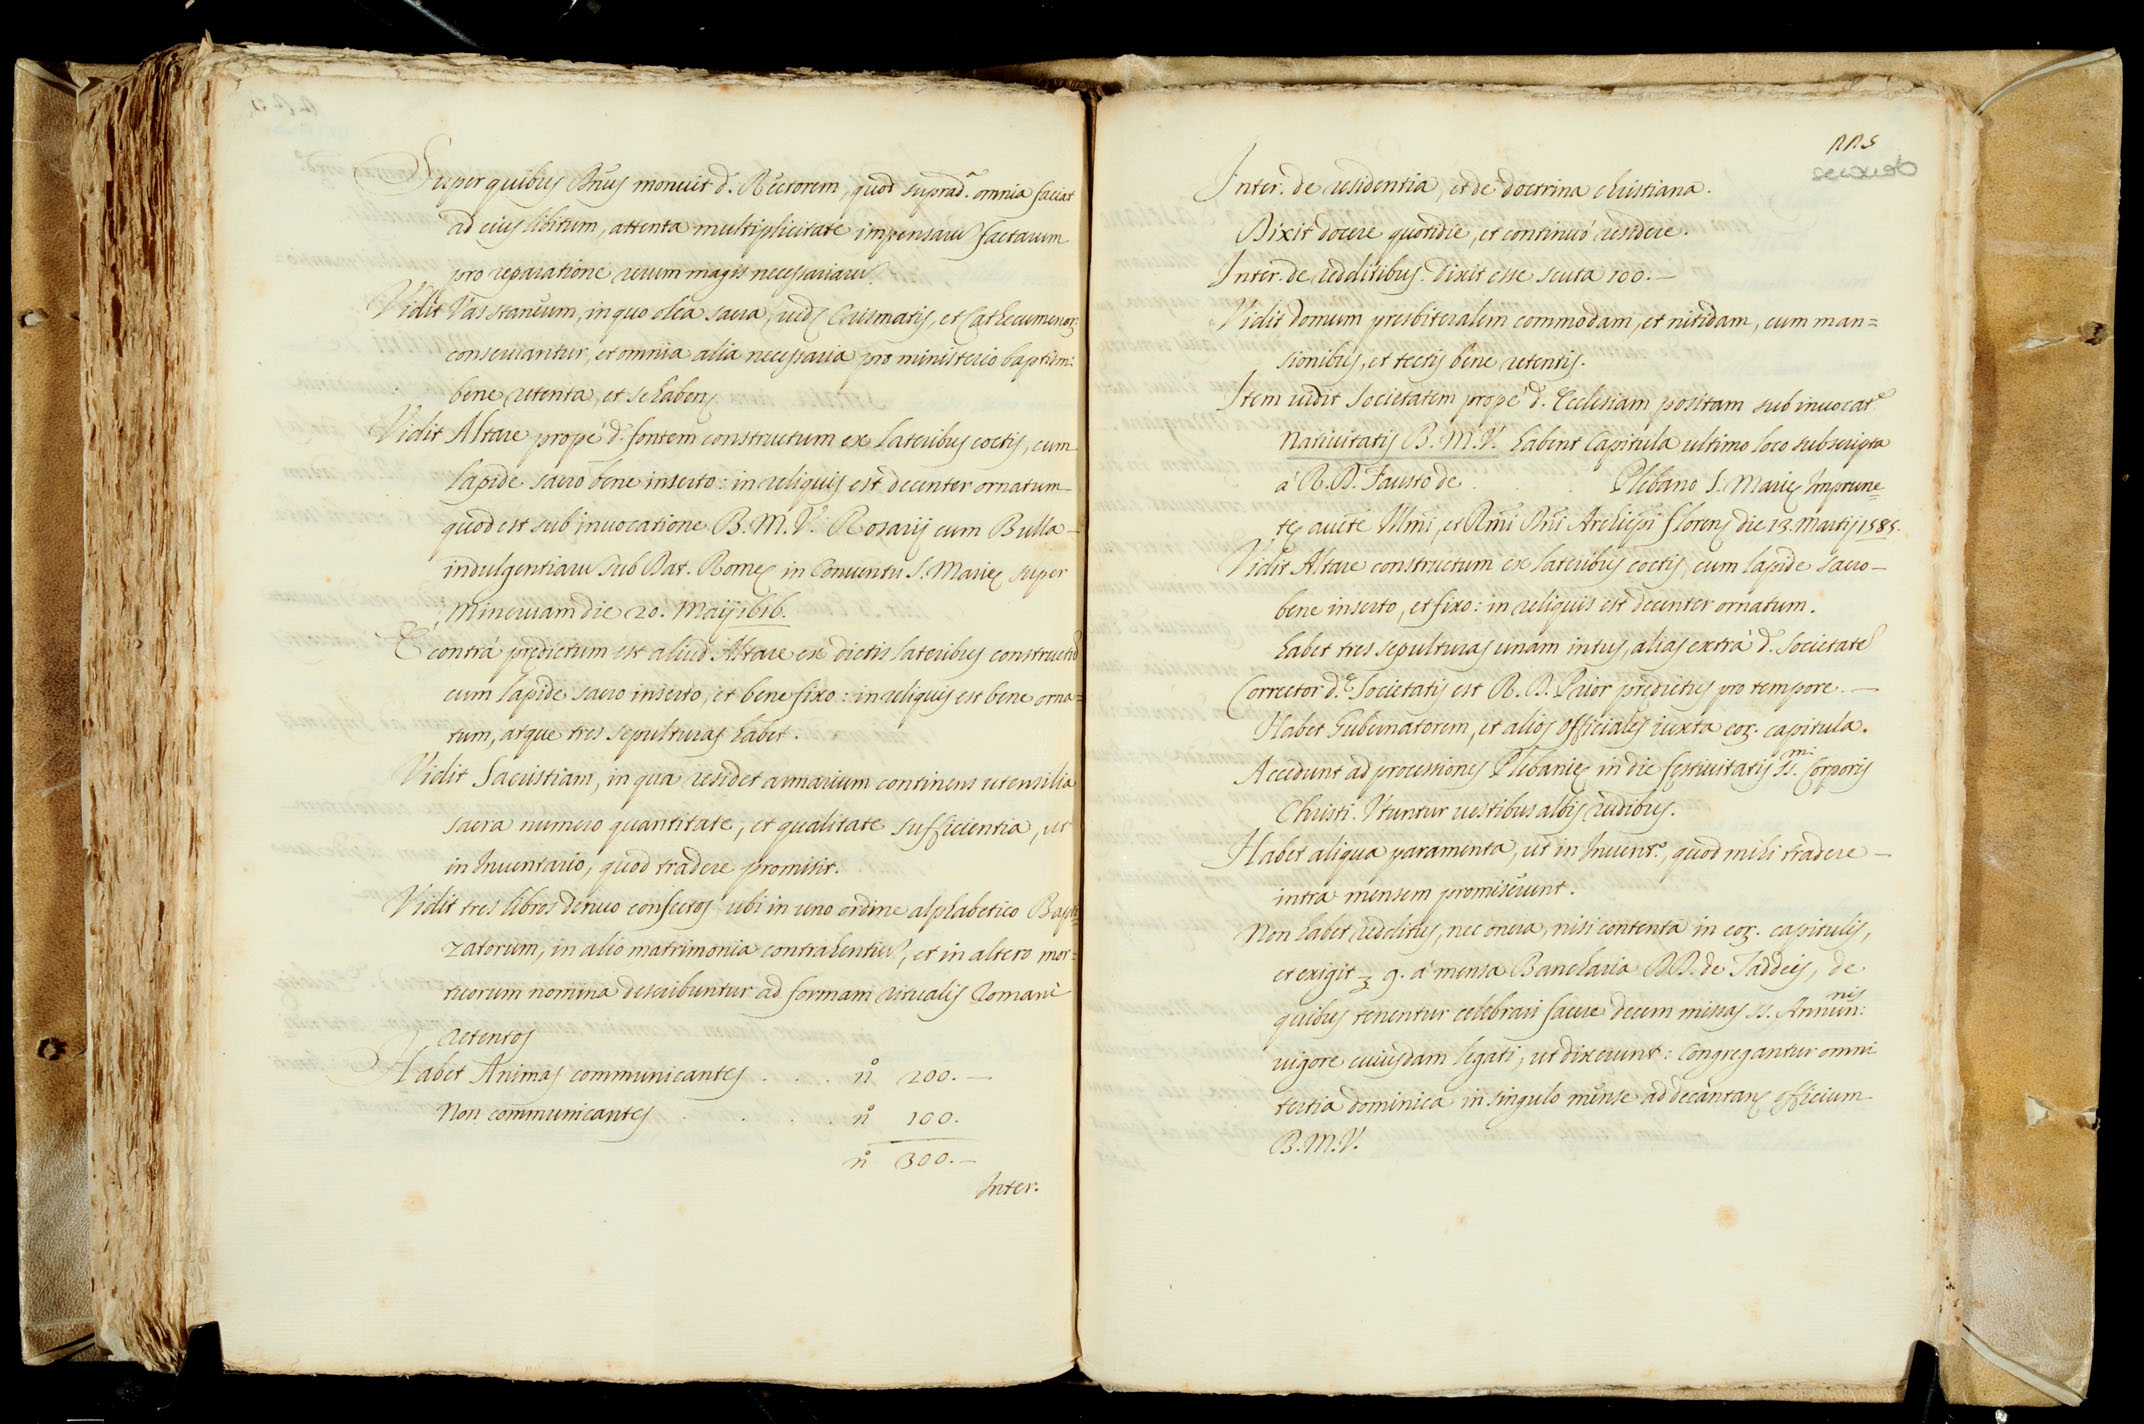 Super quibus Dñus monuit d. Rectorem, quod suprad. omnia faciat
ad eius libitum, attenta multiplicitate impensaru factarum
pro reparatione rerum magis necessariaru.
Vidit Vas staneum, in quo olea sacra, ued. Crismatis, et Cathecumenor.
conseruantur, et omnia alia necessaria pro ministerio baptism:
bene retenta, et se habent
Vidit Altare propè d. fontem constructum ex lateribus coctis, cum
lapide sacro bene inserto: in reliquis est decenter ornatum
quod est sub inuocatione B. M. V. Rosarij cum Bulla
indulgentiaru sub Dat. Rome in Conuentu S. Marie super
Mineruam die 20. Maij 1616.
E contrà predictum est aliud Altare ex dictis lateribus constructu
cum lapide sacro inserto, et bene fixo: in reliquis est bene orna=
tum, atque tres sepulturas habet.
Vidit Sacristiam, in qua residet armarium continens utensilia
sacra numero quantitate, et qualitate sufficientia, ut
in Inuentario, quod tradere promisit.
Vidit tres libros denuo confectos ubi in uno ordine alphabetico Bapti=
zatorum, in alio matrimonia contrahentiu, et in altero mor=
tuorum nomina describuntur ad formam ritualis Romani
retentos
Habet Animas communicantes . . . . n.º 200.—
Non communicantes . . . . n.º 100.
n.º 300.—
Inter.
115
Inter. de residentia, et de doctrina christiana.
Dixit docere quotidie, et continuò residere.
Inter. de redditibus. Dixit esse scuta 100.—
Vidit Domum presbiteralem commodam, et nitidam, cum man=
sionibus, et tectis bene retentis.
Item uidit Societatem propè d. Ecclesiam positam sub inuocat.e
Natiuitatis B. M. V. habent Capitula ultimo loco subscripta
à R. D. Fausto de . . . Plebano S. Marie Imprune=
te auct.e Illmi, et Rmi Dñi Archiepi floren. die 13. Martij 1585.
Vidit Altare constructum ex lateribus coctis, cum lapide sacro—
bene inserto, et fixo: in reliquis est decenter ornatum.
habet tres sepulturas unam intus, alias extrà d. Societate
Corrector d.e Societatis est R. D. Prior predictus pro tempore.—
Habet Gubernatorem, et alios officiales iuxta eor. capitula.
Accedunt ad processiones Plebanie in die festiuitatis SS.mi Corporis
Christi. Utuntur uestibus albis rudibus.
Habet aliqua paramenta, ut in Inuent.º, quod mihi tradere—
intra mensem promiserunt.
Non habet redditus, nec onera, nisi contenta in eor. capitulis,
et exigit 9. à mensa Bancharia DD. de Taddeis, de
quibus tenentur celebrari facere decem missas SS. Annun.nis:
uigore cuiusdam legati, ut dixerunt: Congregantur omni
tertia dominica in singulo mense ad decantan. officium
B. M. V.